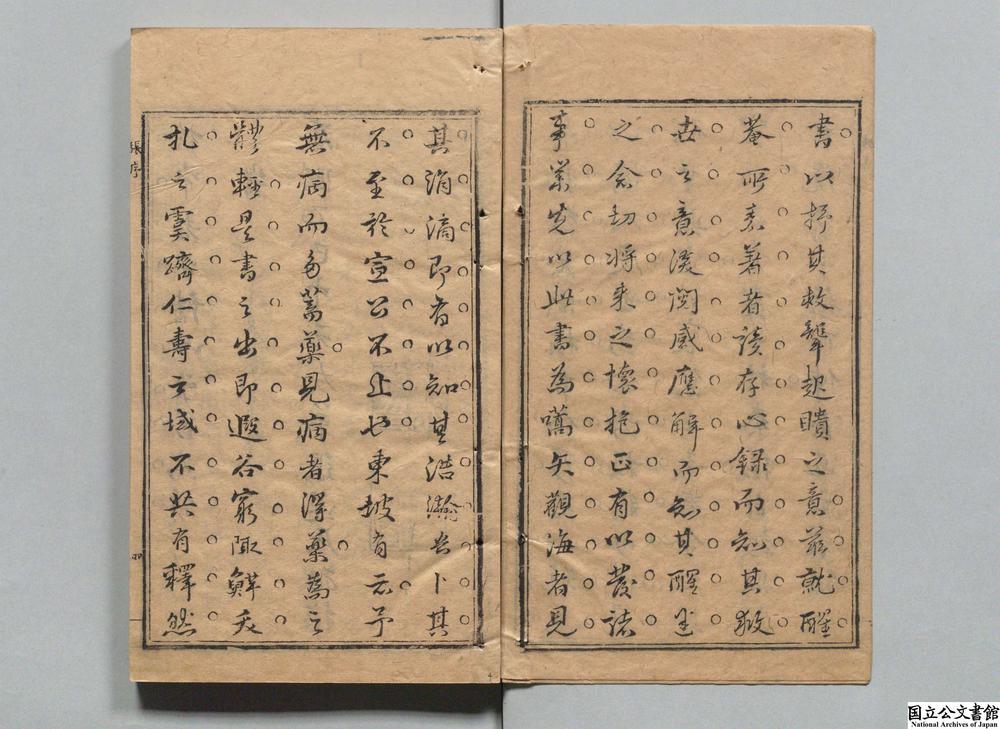 書以抒其救聾起瞶之意茲就醒
菴所衷著者讀存心錄而知其救
世之意深閱感應解而知其醒世
之念切將來之懷抱正有以發諸
事業先以此書為嚆矢觀海者見
其涓滴即有以知其浩瀚吾卜其
不至於宣公不止也東坡有云予
無病而多蓄藥見病者得藥為之
體輕是書之出即遐谷窮陬鮮夭
札之虞躋仁壽之域不共有釋然
張序
四
国立公文書館
National Archives of Japan
4